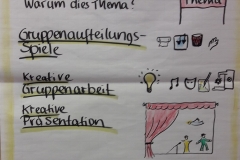 Warum dies Thema?
Thema
Gruppenaufteilungs-
Spiele
Kreative
Gruppenarbeit
Kreative
Präsentation